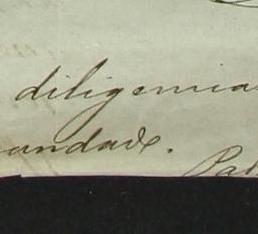 diligencia
andado.
Pa